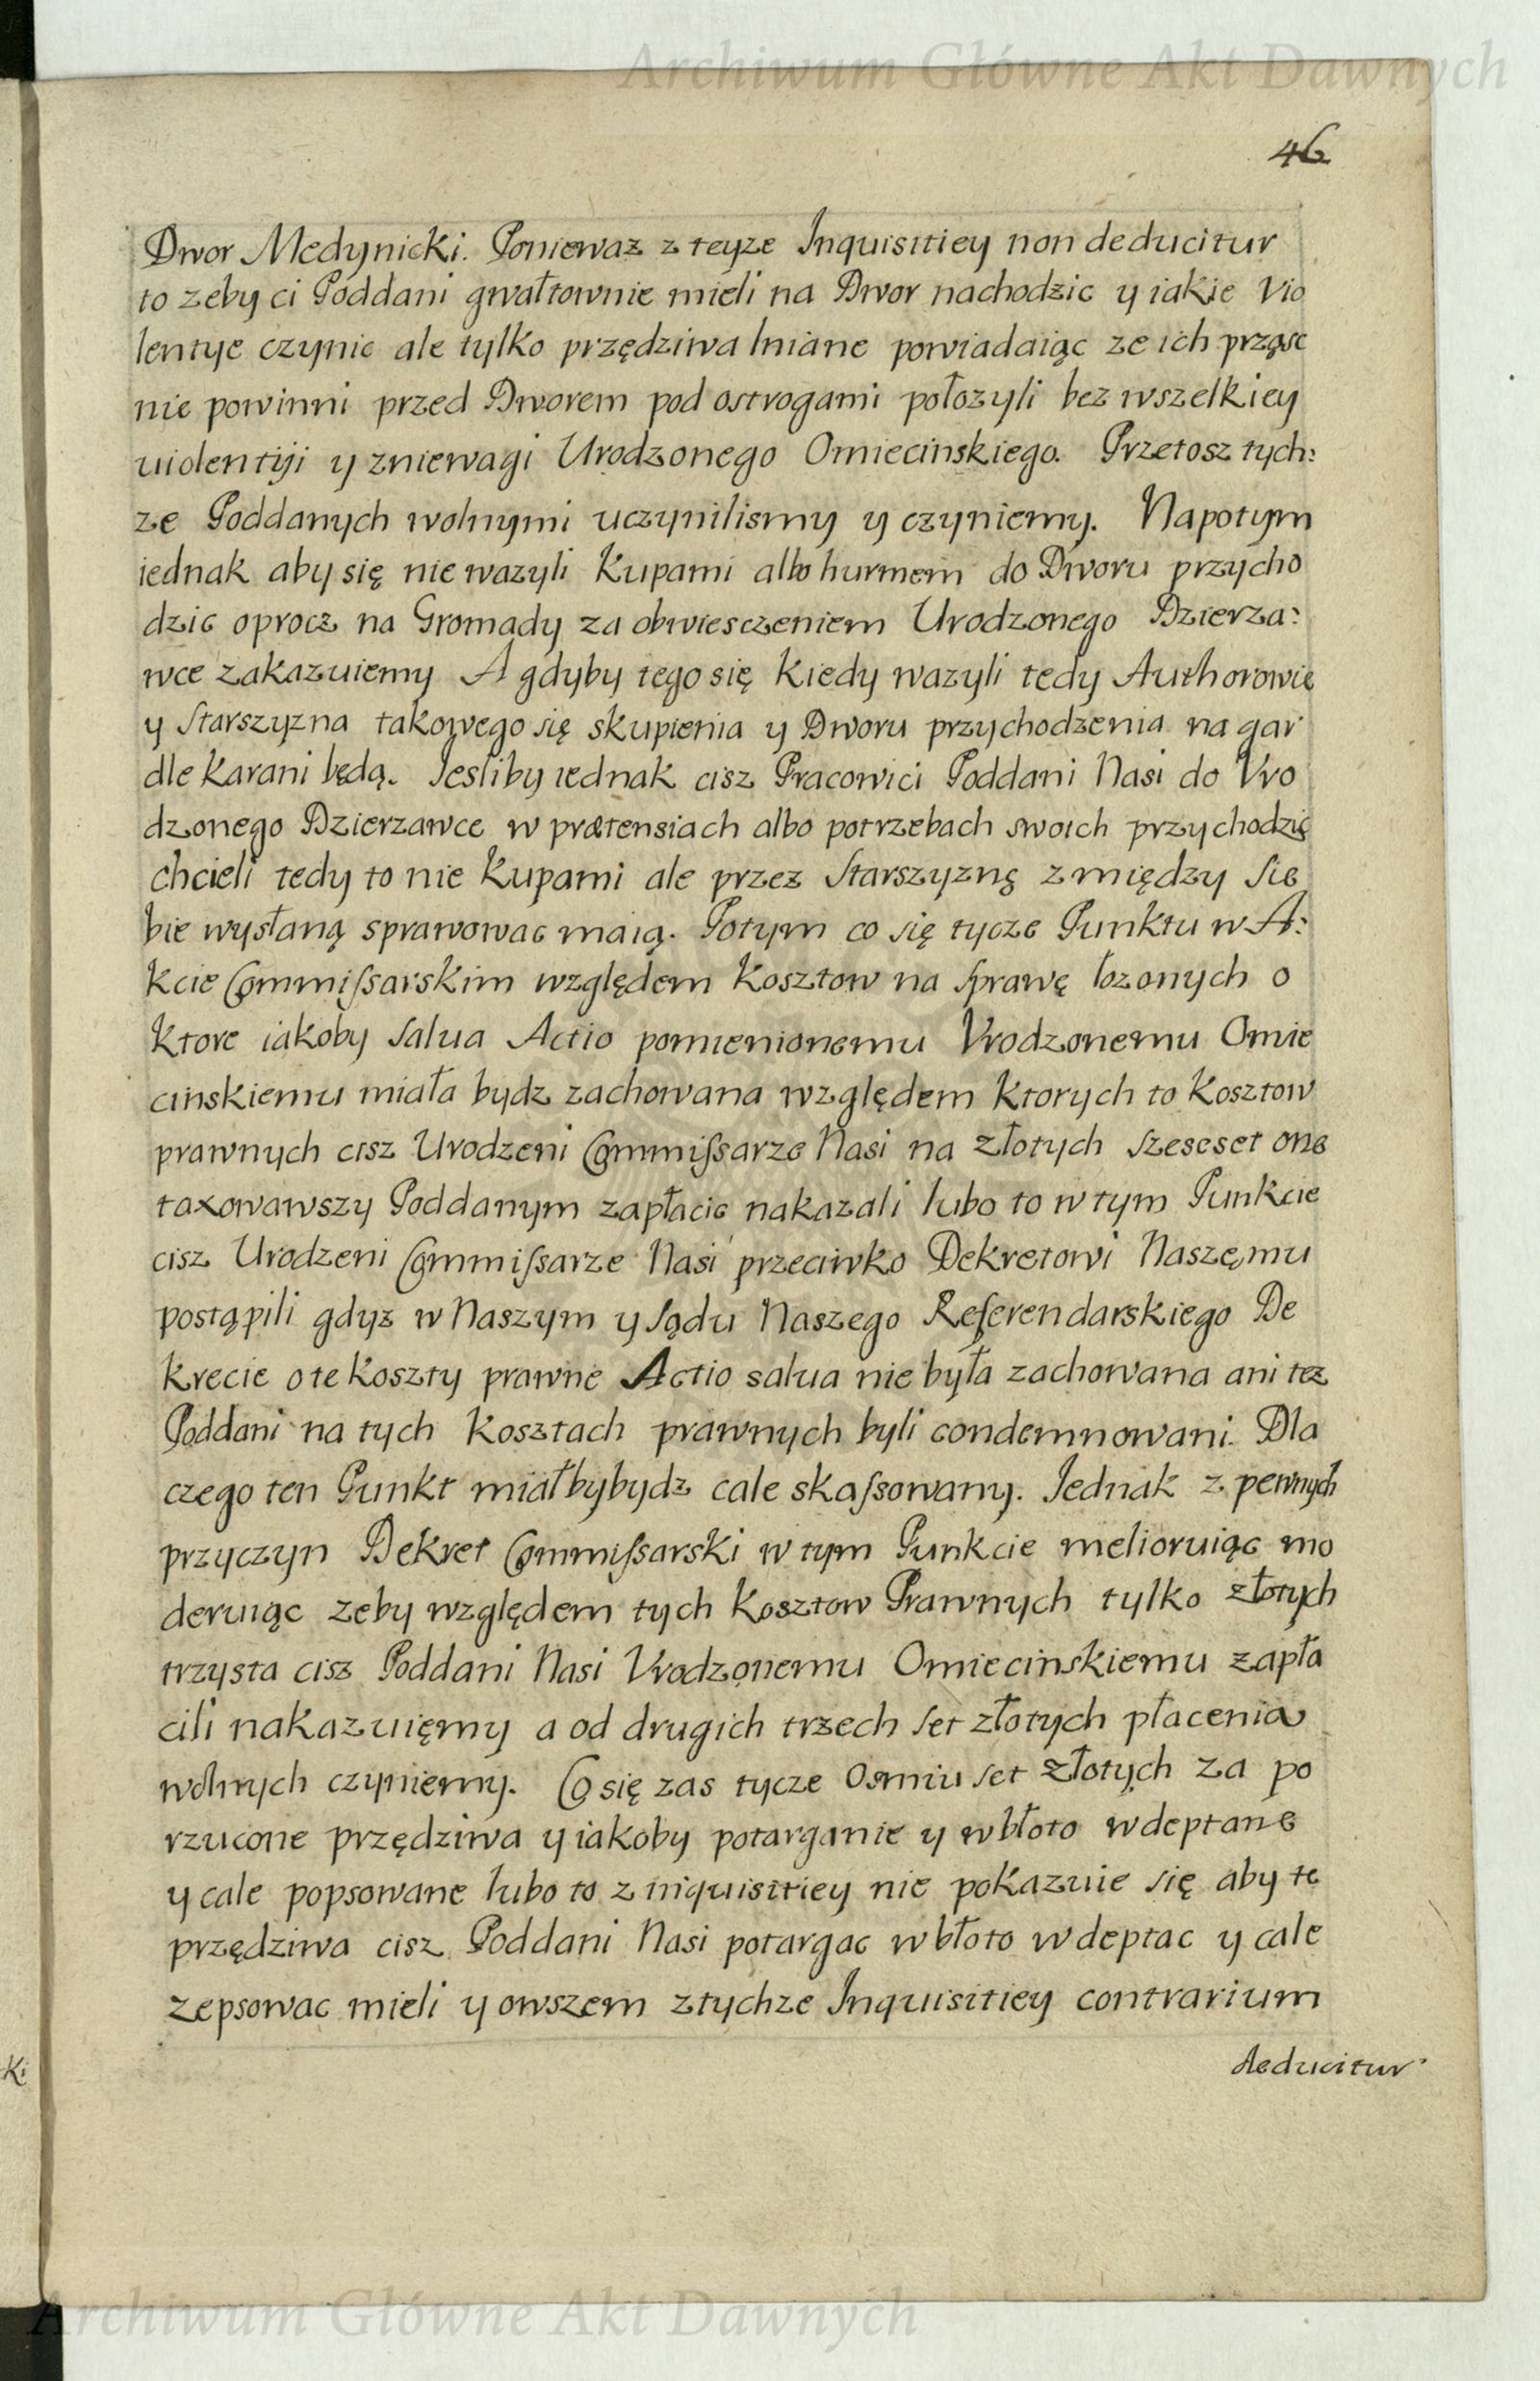 Archiwum Główne Akt Dawnych
46
Dwor Medynicki. Poniewaz z teyze Inquisitiey non deducitur
to zeby ci Poddani gwałtownie mieli na Dwor nachodzic y iakie Vio
lentye czynic ale tylko przędziwa lniane powiadaiąc ze ich prząsc
nie powinni przed Dworem pod ostrogami położyli bez wszelkiey
uiolentyi y zniewagi Urodzonego Omiecinskiego. Przetosz tych:
ze Poddanych wolnymi uczynilismy y czyniemy. Napotym
iednak aby się nie wazyli Kupami albo hurmem do Dworu przycho
dzic oprocz na Gromady za obwiesczeniem Urodzonego Dzierza:
wce zakazuiemy A gdyby tego się kiedy wazyli tedy Authorowie
y Starszyzna takowego się skupienia y Dworu przychodzenia na gar
dle karani będą. Iesliby iednak cisz Pracowici Poddani Nasi do Vro
dzonego Dzierzawce w prætensiach albo potrzebach swoich przychodzic
chcieli tedy to nie Kupami ale przez Starszyznę z między Sie
bie wysłaną sprawowac maią. Potym co się tycze Punktu w A:
kcie Commissarskim względem Kosztow na Sprawę łozonych o
ktore iakoby Salua Actio pomienionemu Vrodzonemu Omie
cinskiemu miała bydz zachowana względem ktorych to Kosztow
prawnych cisz Urodzeni Commissarze Nasi na złotych szescset one
taxowawszy Poddanym zapłacic nakazali lubo to w tym Punkcie
cisz Urodzeni Commissarze Nasi przeciwko Dekretowi Naszemu
postąpili gdyz w Naszym y Sądu Naszego Referendarskiego De
krecie o te koszty prawne Actio salua nie była zachowana ani tez
Poddani na tych Kosztach prawnych byli condemnowani. Dla
czego ten Punkt miałby bydz cale skassowany. Jednak z pewnych
przyczyn Dekret Commissarski w tym Punkcie melioruiąc mo
deruiąc zeby względem tych Kosztow Prawnych tylko złotych
trzysta cisz Poddani Nasi Vrodzonemu Omiecinskiemu zapła
cili nakazuięmy a od drugich trzech set złotych płacenia
wolnych czyniemy. Co się zas tycze Osmiu set złotych za po
rzucone przędziwa y iakoby potarganie y w błoto wdeptane
y cale popsowane lubo to z inquisitiey nie pokazuie się aby te
przędziwa cisz Poddani Nasi potargac w błoto wdeptac y cale
zepsowac mieli y owszem z tychze Inquisitiey contrarium
deducitur
ki
Archiwum Główne Akt Dawnych